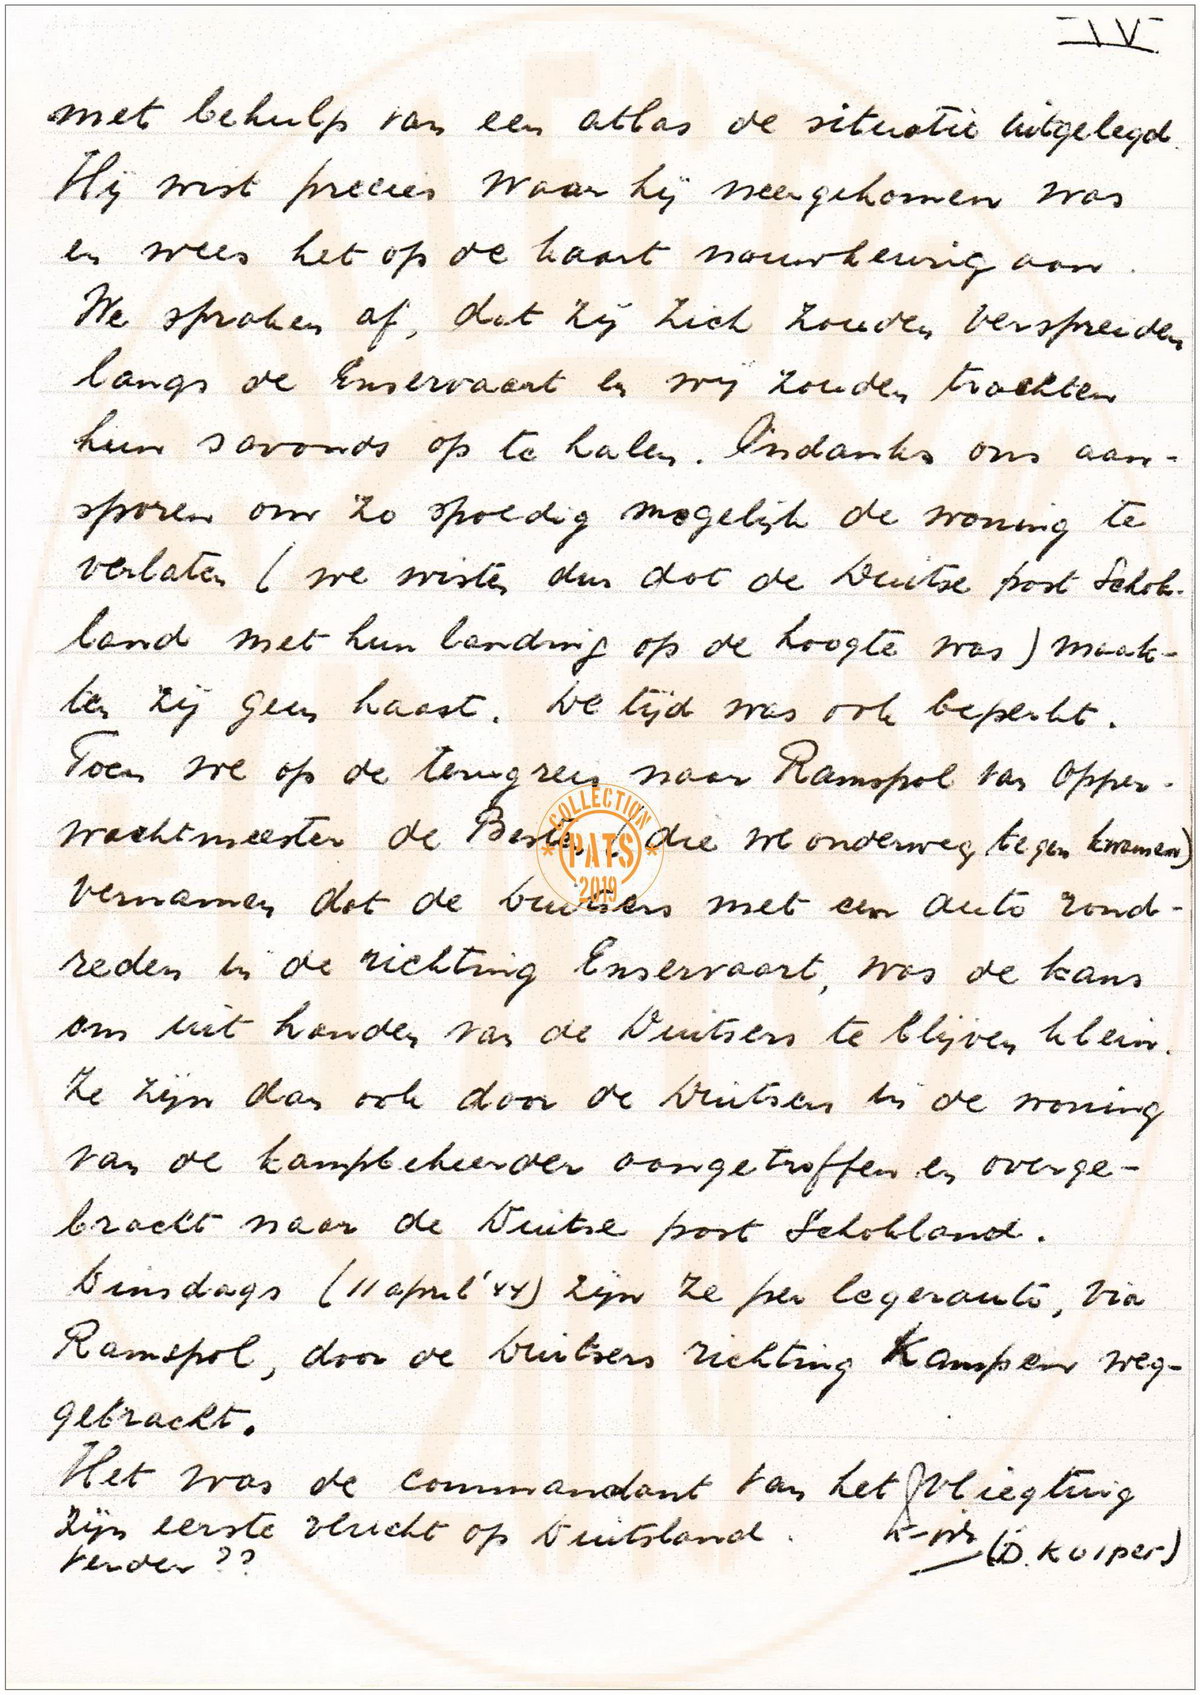 IV
met behulp van een atlas de situatie uitgelegd.
Hij wist precies waar hij neergekomen was
en wees het op de kaart nauwkeurig aan.
We spraken af, dat zij zich zouden verspreiden
langs de Enservaart en wij zouden trachten
hun savonds op te halen. Ondanks ons aan-
sporen om zo spoedig mogelijk de woning te
verlaten (we wisten dus dat de Duitse post Schok-
land met hun landing op de hoogte was) maak-
ten zij geen haast. De tijd was ook beperkt.
Toen we op de terugreis naar Ramspol van opper-
wachtmeester de Besten (die we onderweg tegen kwamen)
vernamen dat de Duitsers met een auto rond-
reden in de richting Enservaart, was de kans
om uit handen van de Duitsers te blijven klein.
Ze zijn dan ook door de Duitsers in de woning
van de kampbeheerder aangetroffen en overge-
bracht naar de Duitse post Schokland.
Dinsdags (11 april '44) zijn ze per legerauto, via
Ramspol, door de Duitsers richting Kampen weg-
gebracht.
Het was de commandant van het vliegtuig
zijn eerste vlucht op Duitsland.
Verder ??
(D. Kuiper)
COLLECTION
* PATS *
2019